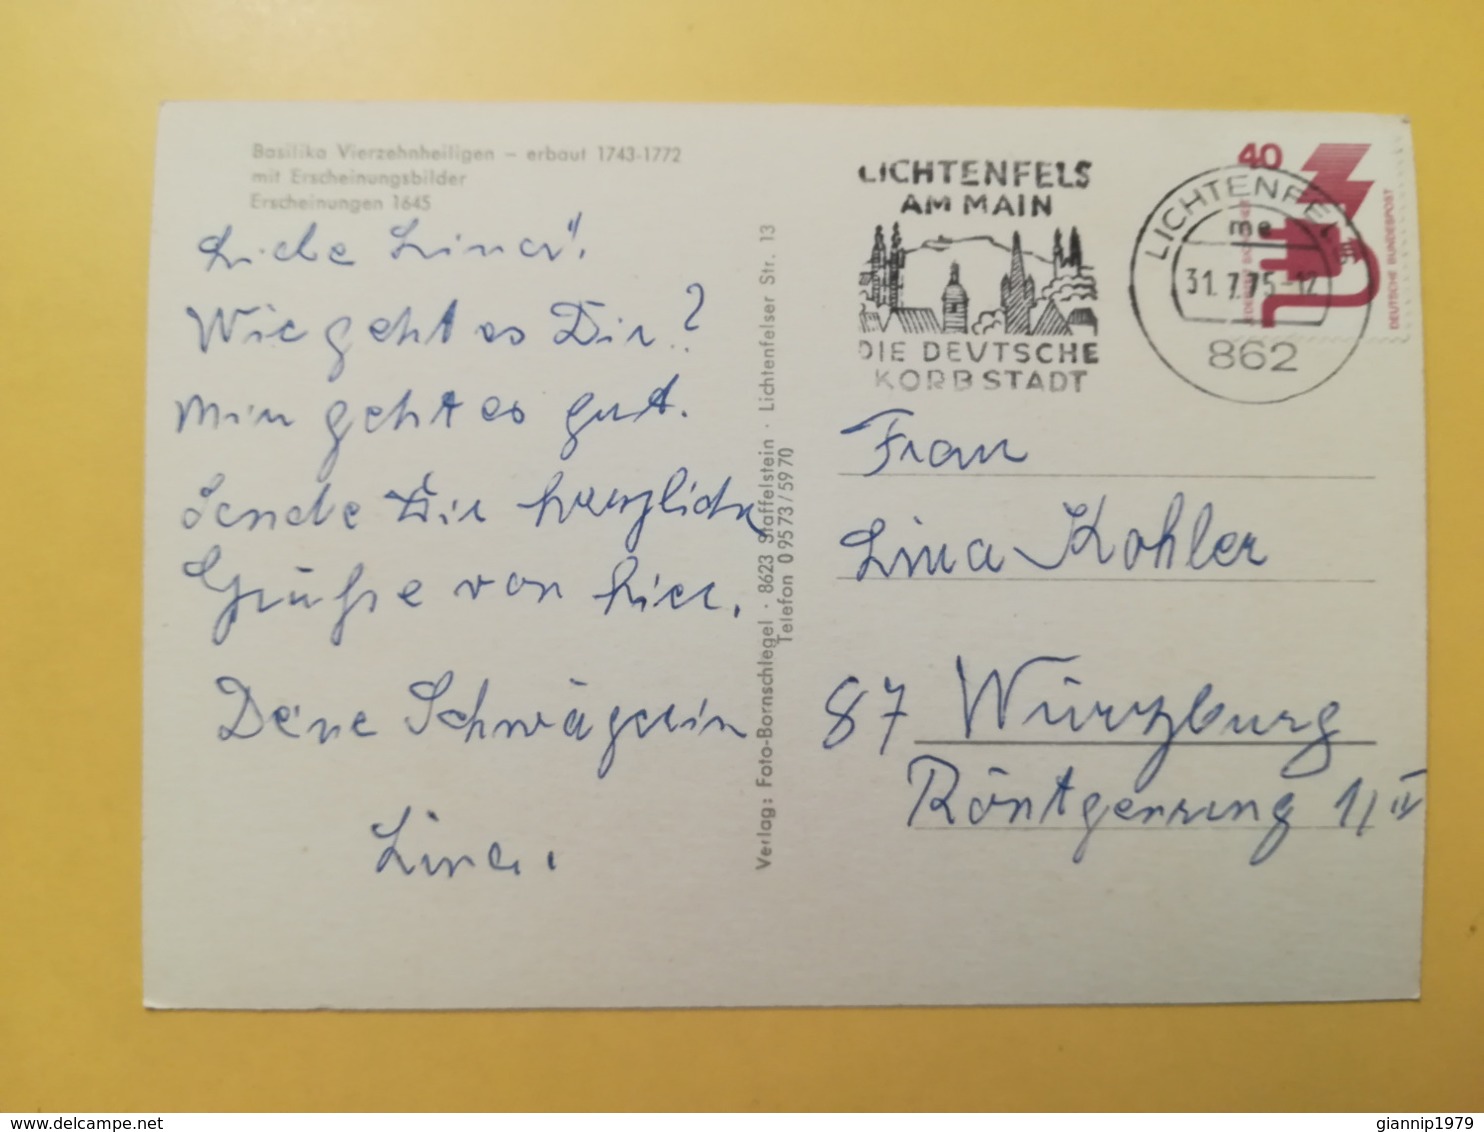 Basilika Vierzehnheiligen – erbaut 1743-1772
mit Erscheinungsbilder
Erscheinungen 1645
Liebe Lina!
Wie geht es Dir?
Mir geht es gut.
Sende Dir herzliche
Grüße von hier.
Deine Schwägerin
Lina.
Verlag: Foto-Bornschlegel · 8623 Staffelstein · Lichtenfelser Str. 13
Telefon 09573/5970
LICHTENFELS
AM MAIN
DIE DEUTSCHE
KORBSTADT
LICHTENFELS
me
31.7.75-12
862
40
DEUTSCHE BUNDESPOST
Frau
Lina Kohler
87 Würzburg
Röntgenring 1/IV
giannip1979